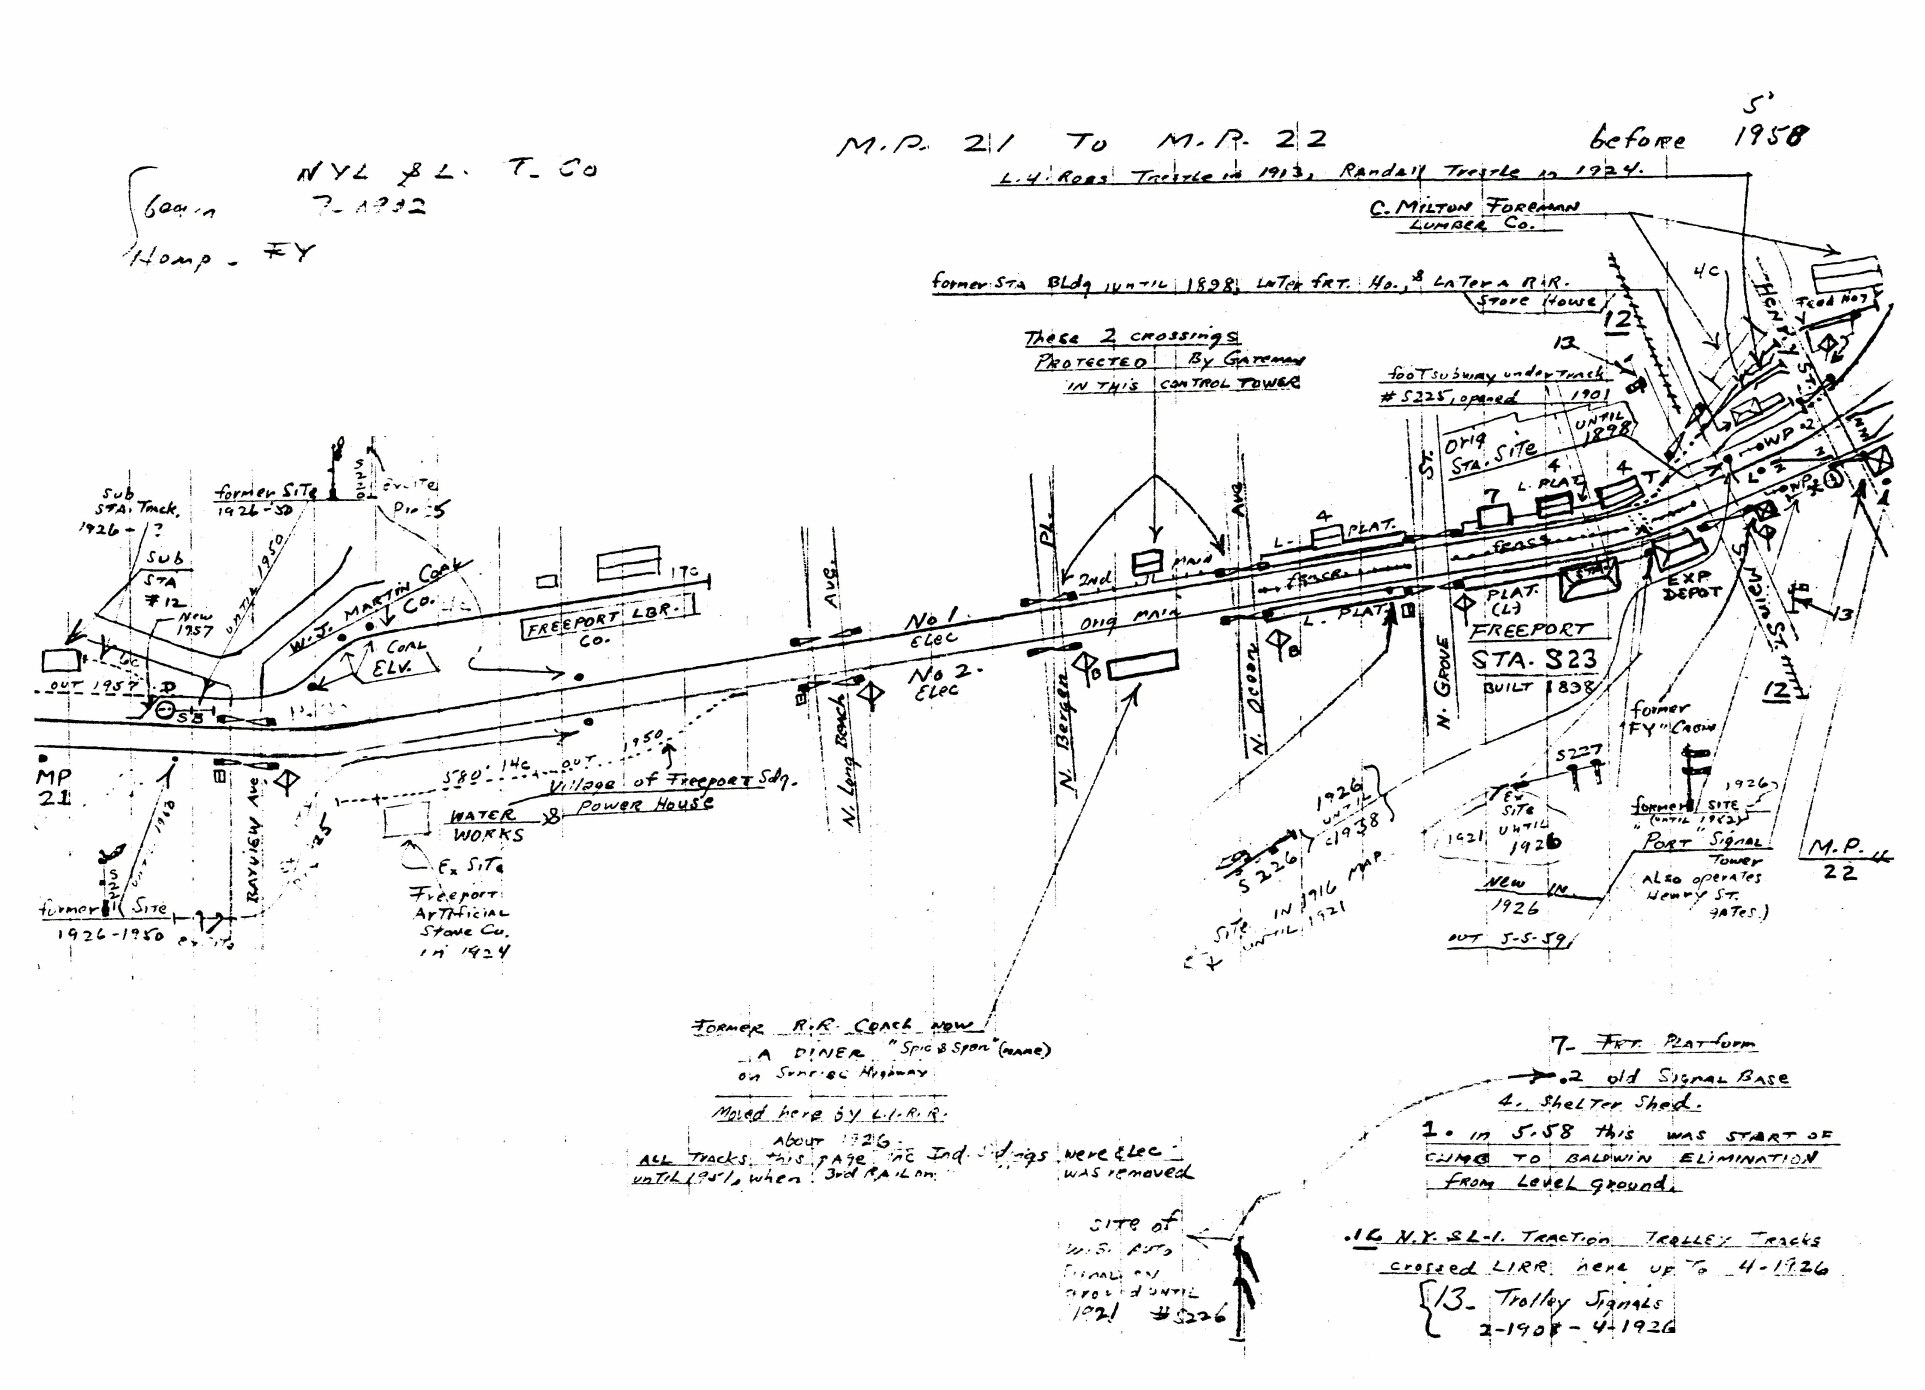 M.P. 21 TO M.P. 22
before 1958
NYL & L. T. Co
began
Homp - FY
L.V. Roas Trestle in 1913, Randall Trestle in 1924.
C. MILTON FOREMAN
LUMBER Co.
former STA Bldg UNTIL 1898, LATER FRT. Ho., & LATER A R.R.
STORE HOUSE
These 2 crossings
PROTECTED By GATEMAN
IN THIS CONTROL TOWER
12
13
4C
HENRY ST.
foot subway under track
# S225, opened 1901
orig
STA. SITE
UNTIL
1898
sub
STA. Track,
1926 - ?
sub
STA
#12
New
1957
former Site
1926-50
S
2
2
0
ex site
UNTIL 1950
W.J. MARTIN COAL
Co.
COAL
ELV.
17C
FREEPORT LBR.
CO.
6C
OUT 1957
D
SB
MP
21
BAYVIEW Ave
580' 14C OUT 1950
Village of Freeport Sdg.
WATER & POWER HOUSE
WORKS
Ex Site
Freeport
Artificial
Stone Co.
in 1924
S
2
2
1
UNTIL 1950
former Site
1926-1950
ex site
Ave.
N. Long Beach
No 1
ELEC
No 2.
ELEC
Pl.
N. Bergen
2nd MAIN
Orig MAIN
B
Ave
N. Ocean
B
L. 4 PLAT.
fence
L. PLAT.
ST.
N. GROVE
7
4
L. PLAT
4
T
fence
STA.
PLAT.
(L)
EXP
DEPOT
FREEPORT
STA. S23
BUILT 1898
WP 2
S. Main ST.
13
12
former
"FY" Cabin
S227
Ex
SITE
UNTIL
1926
1921
NEW IN
1926
OUT 5-5-59
1926
former SITE
"PORT" Signal
Tower
(Also operates
Henry ST.
GATES.)
M.P.
22
1926
UNTIL
1938
S 226
SITE IN 1916 MAP
UNTIL 1921
FORMER R.R. COACH NOW
A DINER "Spic & Span" (NAME)
on Sunrise Highway
Moved here by L.I.R.R.
ABOUT 1926.
ALL Tracks this page inc Ind. Sidings were Elec
UNTIL 1951, when 3rd RAIL on was removed
SITE of
W.S. AUTO
SIGNAL ON
ground UNTIL
1921 #S226
7- FRT. PLATform
.2 old SIGNAL BASE
4. SHELTER Shed.
1. in 5.58 this WAS START OF
CLIMB TO BALDWIN ELIMINATION
FROM Level ground.
.12 N.Y. & L-I. TRACTION TROLLEY TRACKS
crossed LIRR here up To 4-1926
13- Trolley Signals
2-1908 - 4-1926